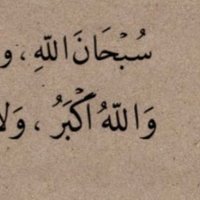 سُبْحَانَ اللّٰهِ ، و
وَاللّٰهُ أَكْبَرُ ، وَلَا